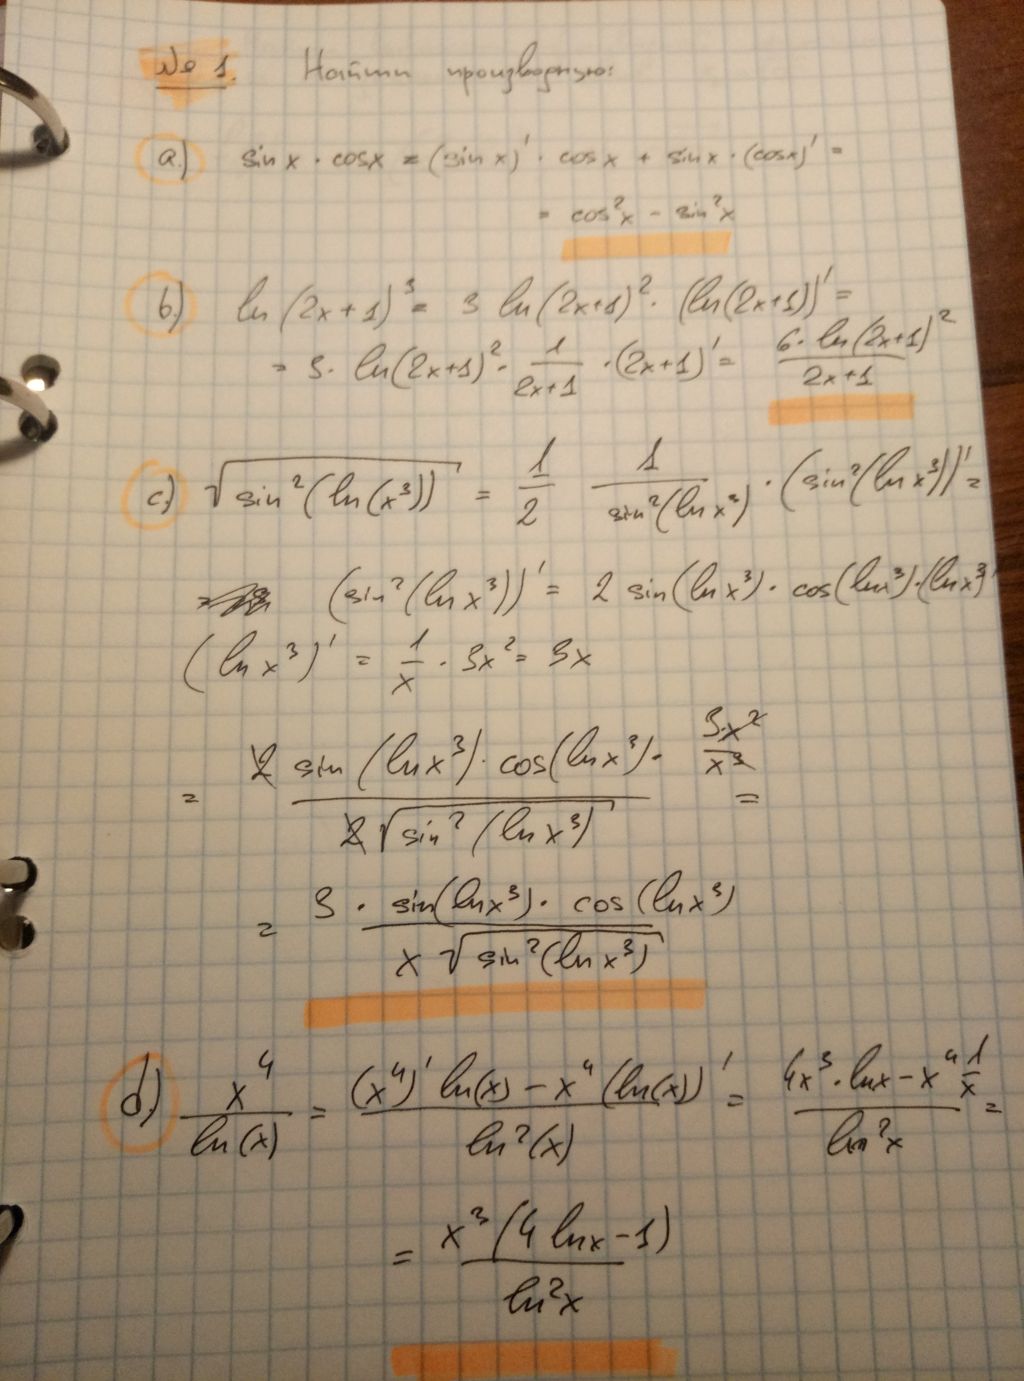 № 1. Найти производную:
a.) sin x · cos x = (sin x)' · cos x + sin x · (cos x)' =
= cos²x − sin²x
b.) ln(2x+1)³ = 3 ln(2x+1)² · (ln(2x+1))' =
= 3 · ln(2x+1)² · 1/(2x+1) · (2x+1)' = (6 · ln(2x+1)²)/(2x+1)
c.) √(sin²(ln(x³))) = 1/2 1/(sin²(ln x³)) · (sin²(ln x³))' =
(sin²(ln x³))' = 2 sin(ln x³) · cos(ln x³) · (ln x³)'
(ln x³)' = 1/x · 3x² = 3x
= (2 sin(ln x³) · cos(ln x³) · 3·x²/x³)/(2√(sin²(ln x³))) =
= (3 · sin(ln x³) · cos(ln x³))/(x√(sin²(ln x³)))
d.) x⁴/ln(x) = ((x⁴)' ln(x) − x⁴ (ln(x))')/(ln²(x)) = (4x³ · ln x − x⁴ 1/x)/(ln²x) =
= (x³(4 ln x − 1))/(ln²x)